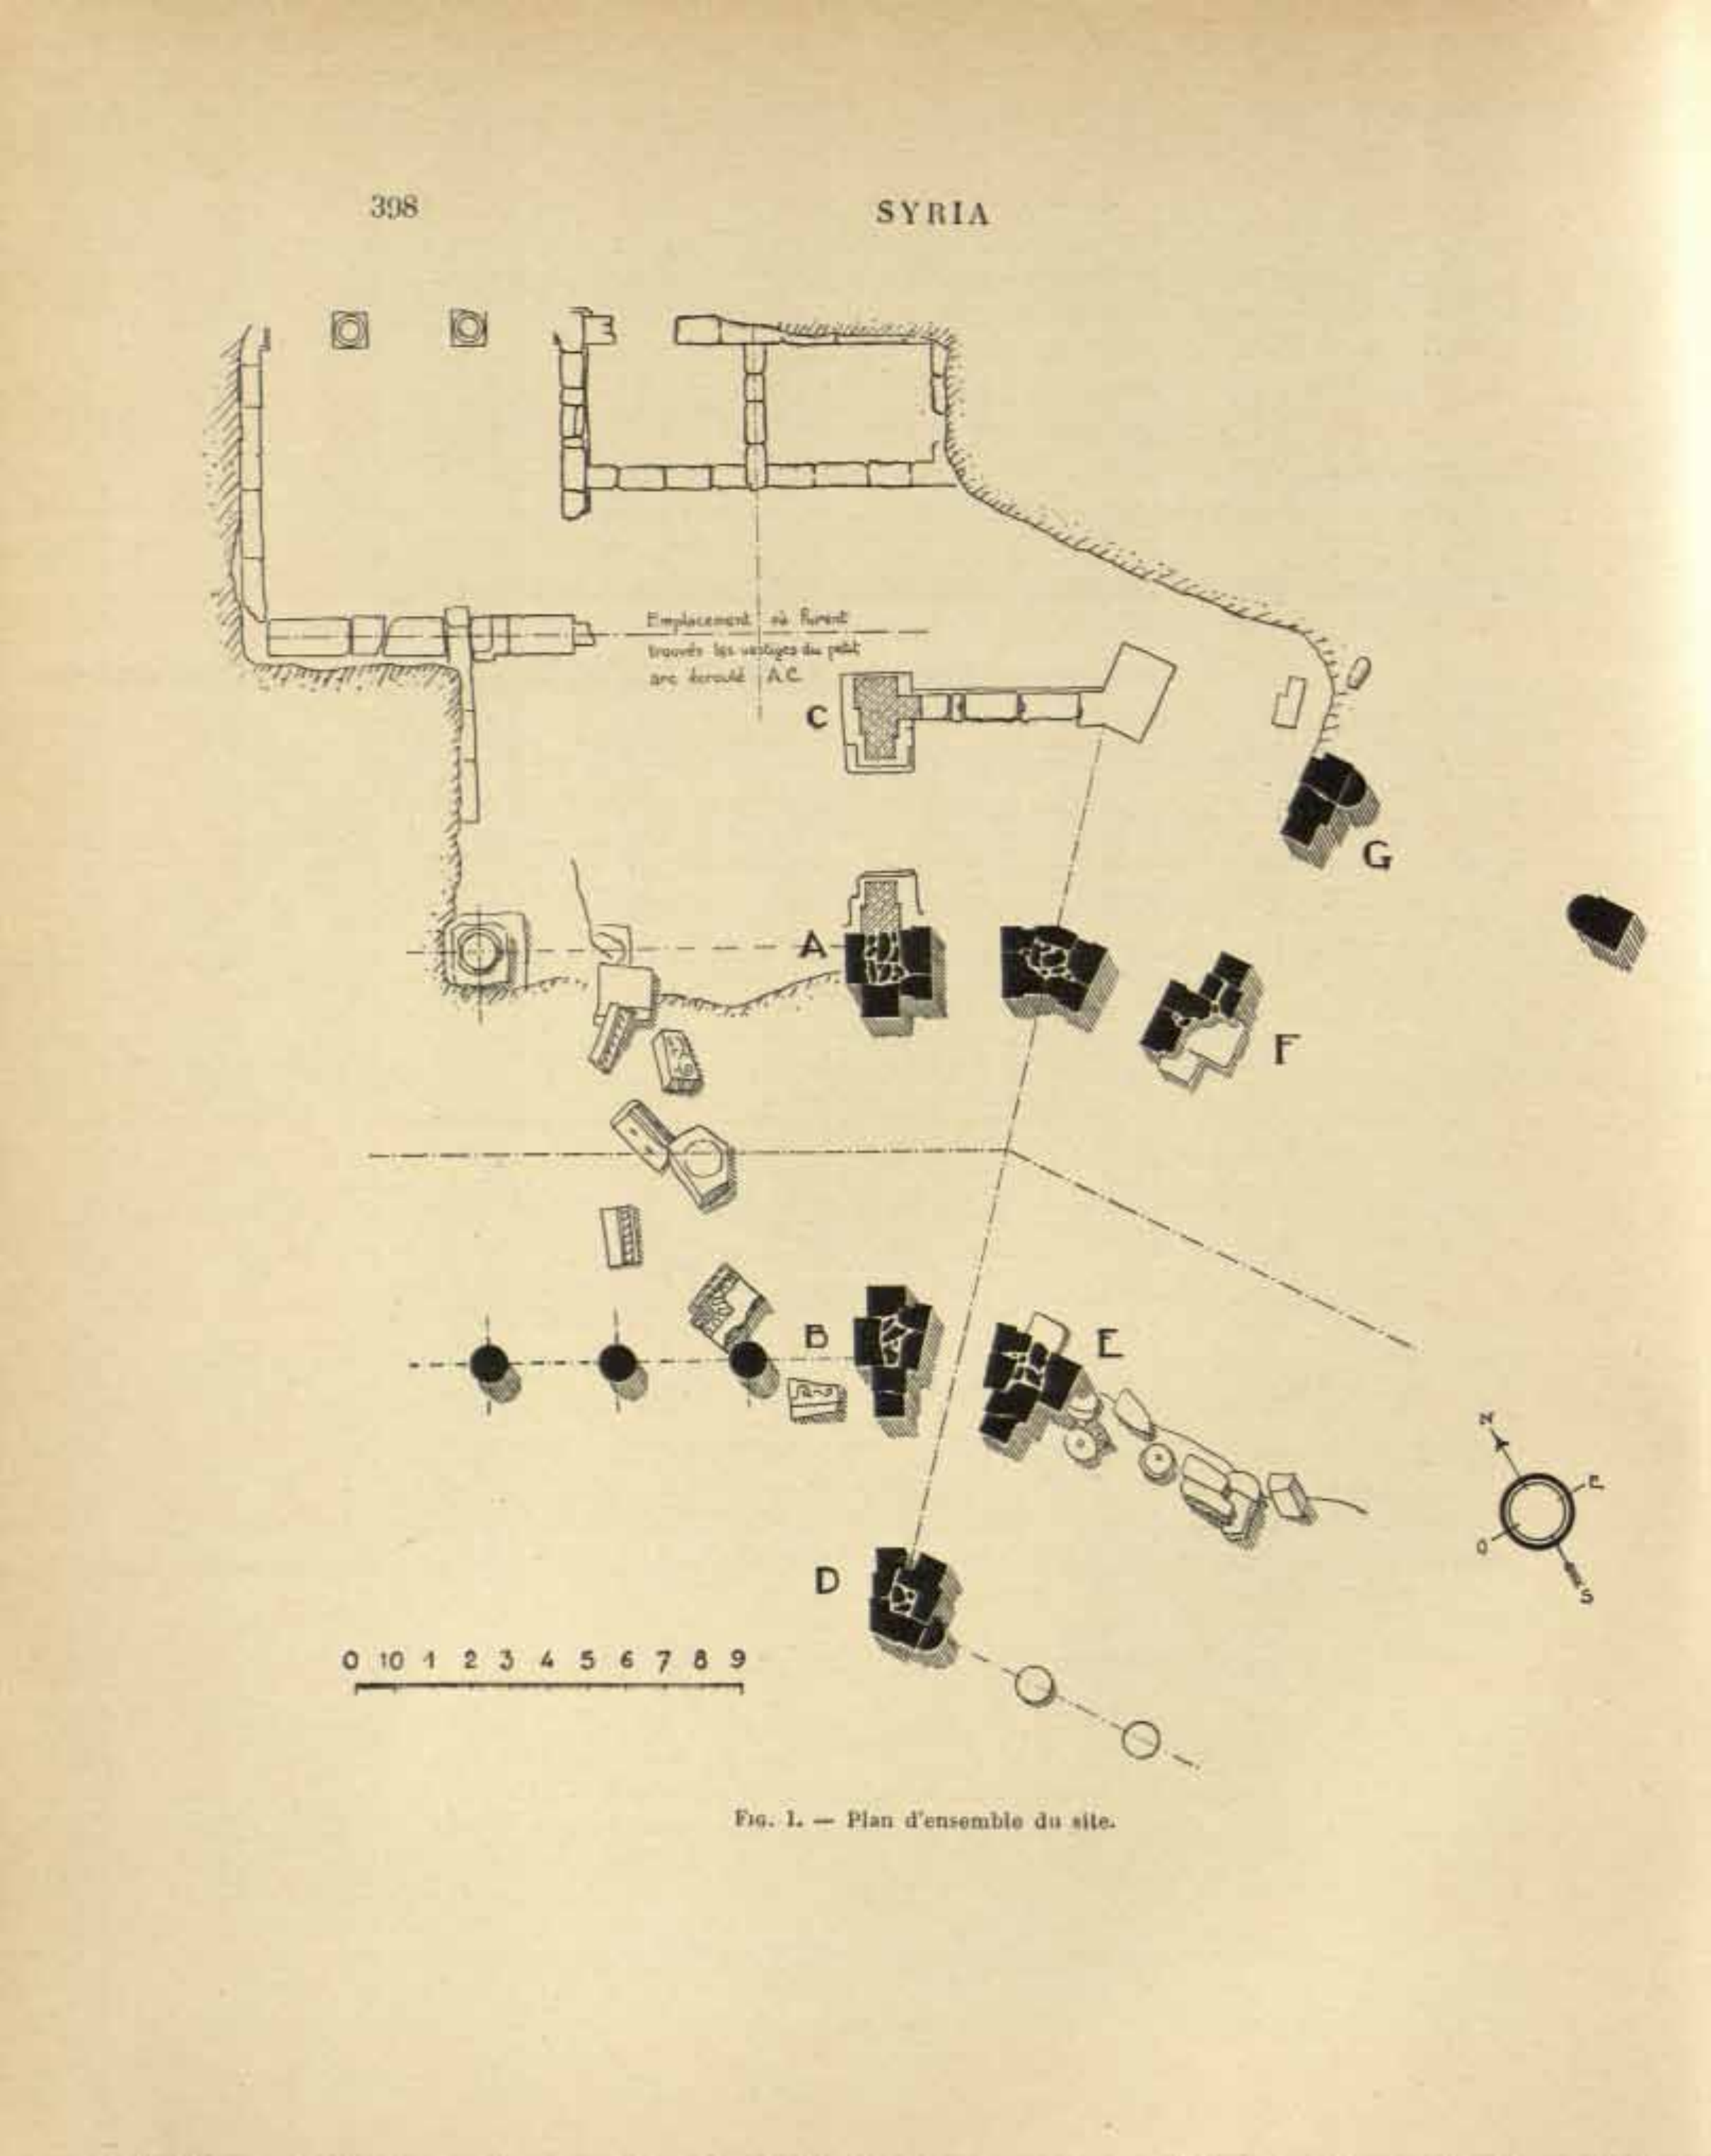 398
SYRIA
Emplacement où furent
trouvés les vestiges du petit
arc écroulé A.C.
C
G
A
F
B
E
N
E
O
S
D
0 10 1 2 3 4 5 6 7 8 9
FIG. 1. — Plan d'ensemble du site.